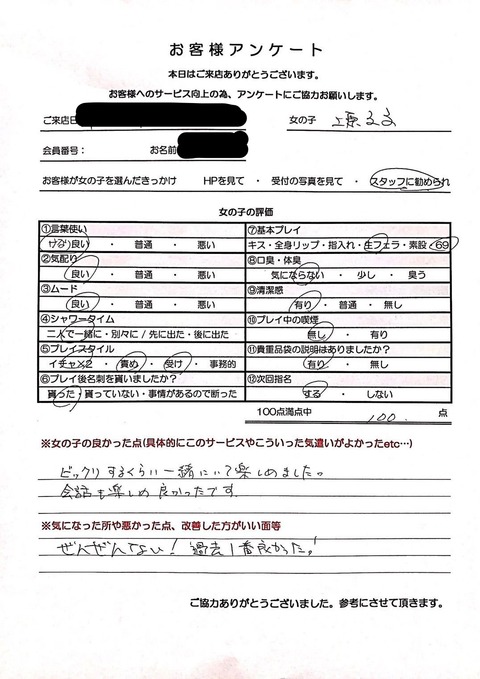 お客様アンケート
本日はご来店ありがとうございます。
お客様へのサービス向上の為、アンケートにご協力お願いします。
ご来店日 女の子 上原るる
会員番号: お名前
お客様が女の子を選んだきっかけ HPを見て ・ 受付の写真を見て ・ スタッフに勧められ
女の子の評価
①言葉使い
かなり良い ・ 普通 ・ 悪い
②気配り
良い ・ 普通 ・ 悪い
③ムード
良い ・ 普通 ・ 悪い
④シャワータイム
二人で一緒に・別々に / 先に出た・後に出た
⑤プレイスタイル
イチャ×2 ・ 責め ・ 受け ・ 事務的
⑥プレイ後名刺を貰いましたか?
貰った・貰っていない・事情があるので断った
⑦基本プレイ
キス・全身リップ・指入れ・生フェラ・素股・69
⑧口臭・体臭
気にならない ・ 少し ・ 臭う
⑨清潔感
有り ・ 普通 ・ 無し
⑩プレイ中の喫煙
無し ・ 有り
⑪貴重品袋の説明はありましたか?
有り ・ 無し
⑫次回指名
する ・ しない
100点満点中 100 点
※女の子の良かった点(具体的にこのサービスやこういった気遣いがよかったetc…)
ビックリするくらい一緒にいて楽しめました。
会話も楽しめ良かったです
※気になった所や悪かった点、改善した方がいい面等
ぜんぜんない! 過去1番良かった!
ご協力ありがとうございました。参考にさせて頂きます。